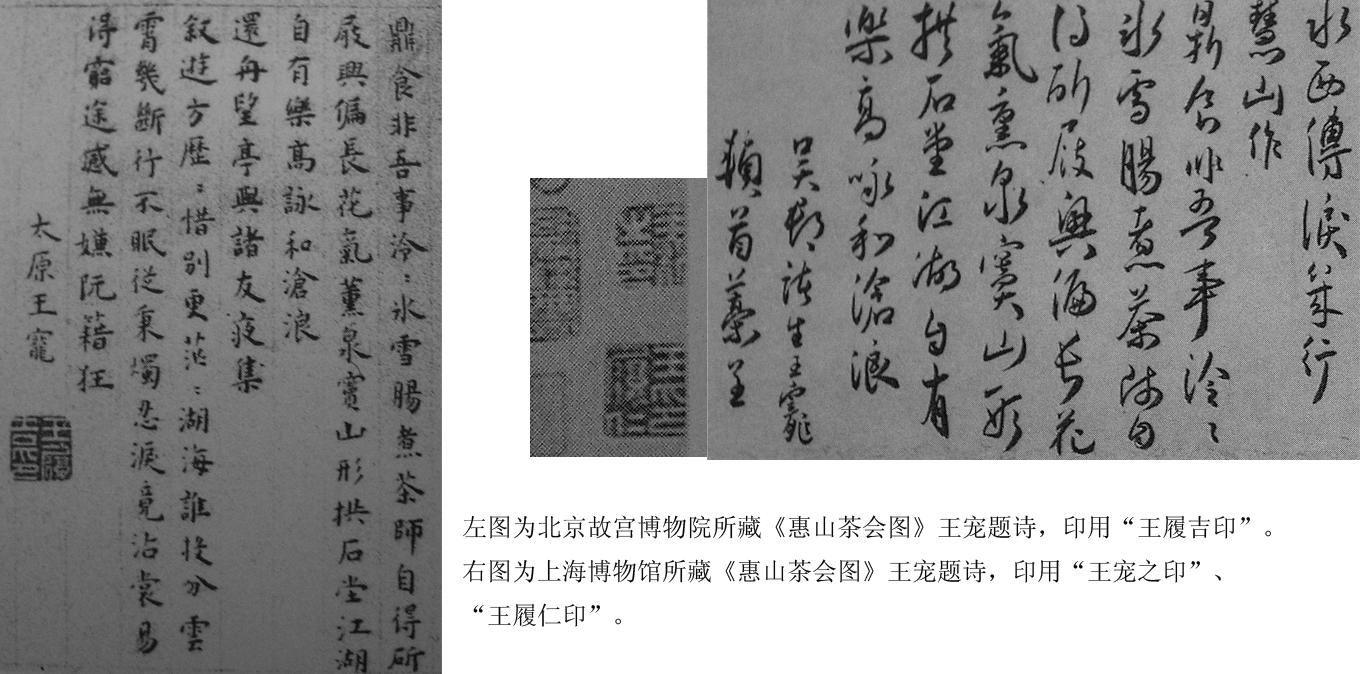 鼎食非吾事泠〻氷雪腸煮茶師自得斫
屐興偏長花氣薰泉竇山形拱石堂江湖
自有樂高詠和滄浪
還舟望亭與諸友夜集
叙遊方歷〻惜別更茫〻湖海誰投分雲
霄幾斷行不眠從秉燭忍淚竟沾裳易
得窮途感無嫌阮籍狂
太原王寵
王履吉印
水西行
慧山作
鼎食非吾事泠〻
氷雪腸煮茶師自
得斫屐興偏長花
氣薰泉竇山形
拱石堂江湖自有
樂高詠和滄浪
吳郡諸生王寵
頓首藁呈
左图为北京故宫博物院所藏《惠山茶会图》王宠题诗，印用“王履吉印”。
右图为上海博物馆所藏《惠山茶会图》王宠题诗，印用“王宠之印”、
“王履仁印”。